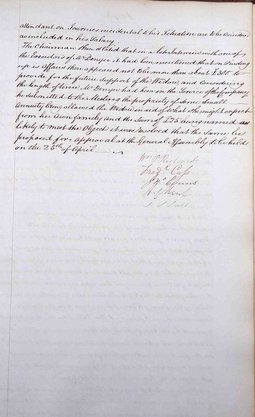 attendant on Journies incidental to his Situation are to be considered
as included in his Salary.
The Chairman then stated that in a late Interview with one of
the Executors of Mr Denyer it had been mentioned that on winding
up his Affairs there appeared not to be more than about £300 to
provide for the future support of the Widow, and considering
the length of time Mr Denyer had been in the Service of the Company
he submitted to the Members the propriety of some small
Annuity being allowed the Widow in aid of what she might expect
from her own family and the Sum of £25 being named as
likely to meet the Object it was resolved that the same be
proposed for approval at the General Assembly to be held
on the 25th of April.